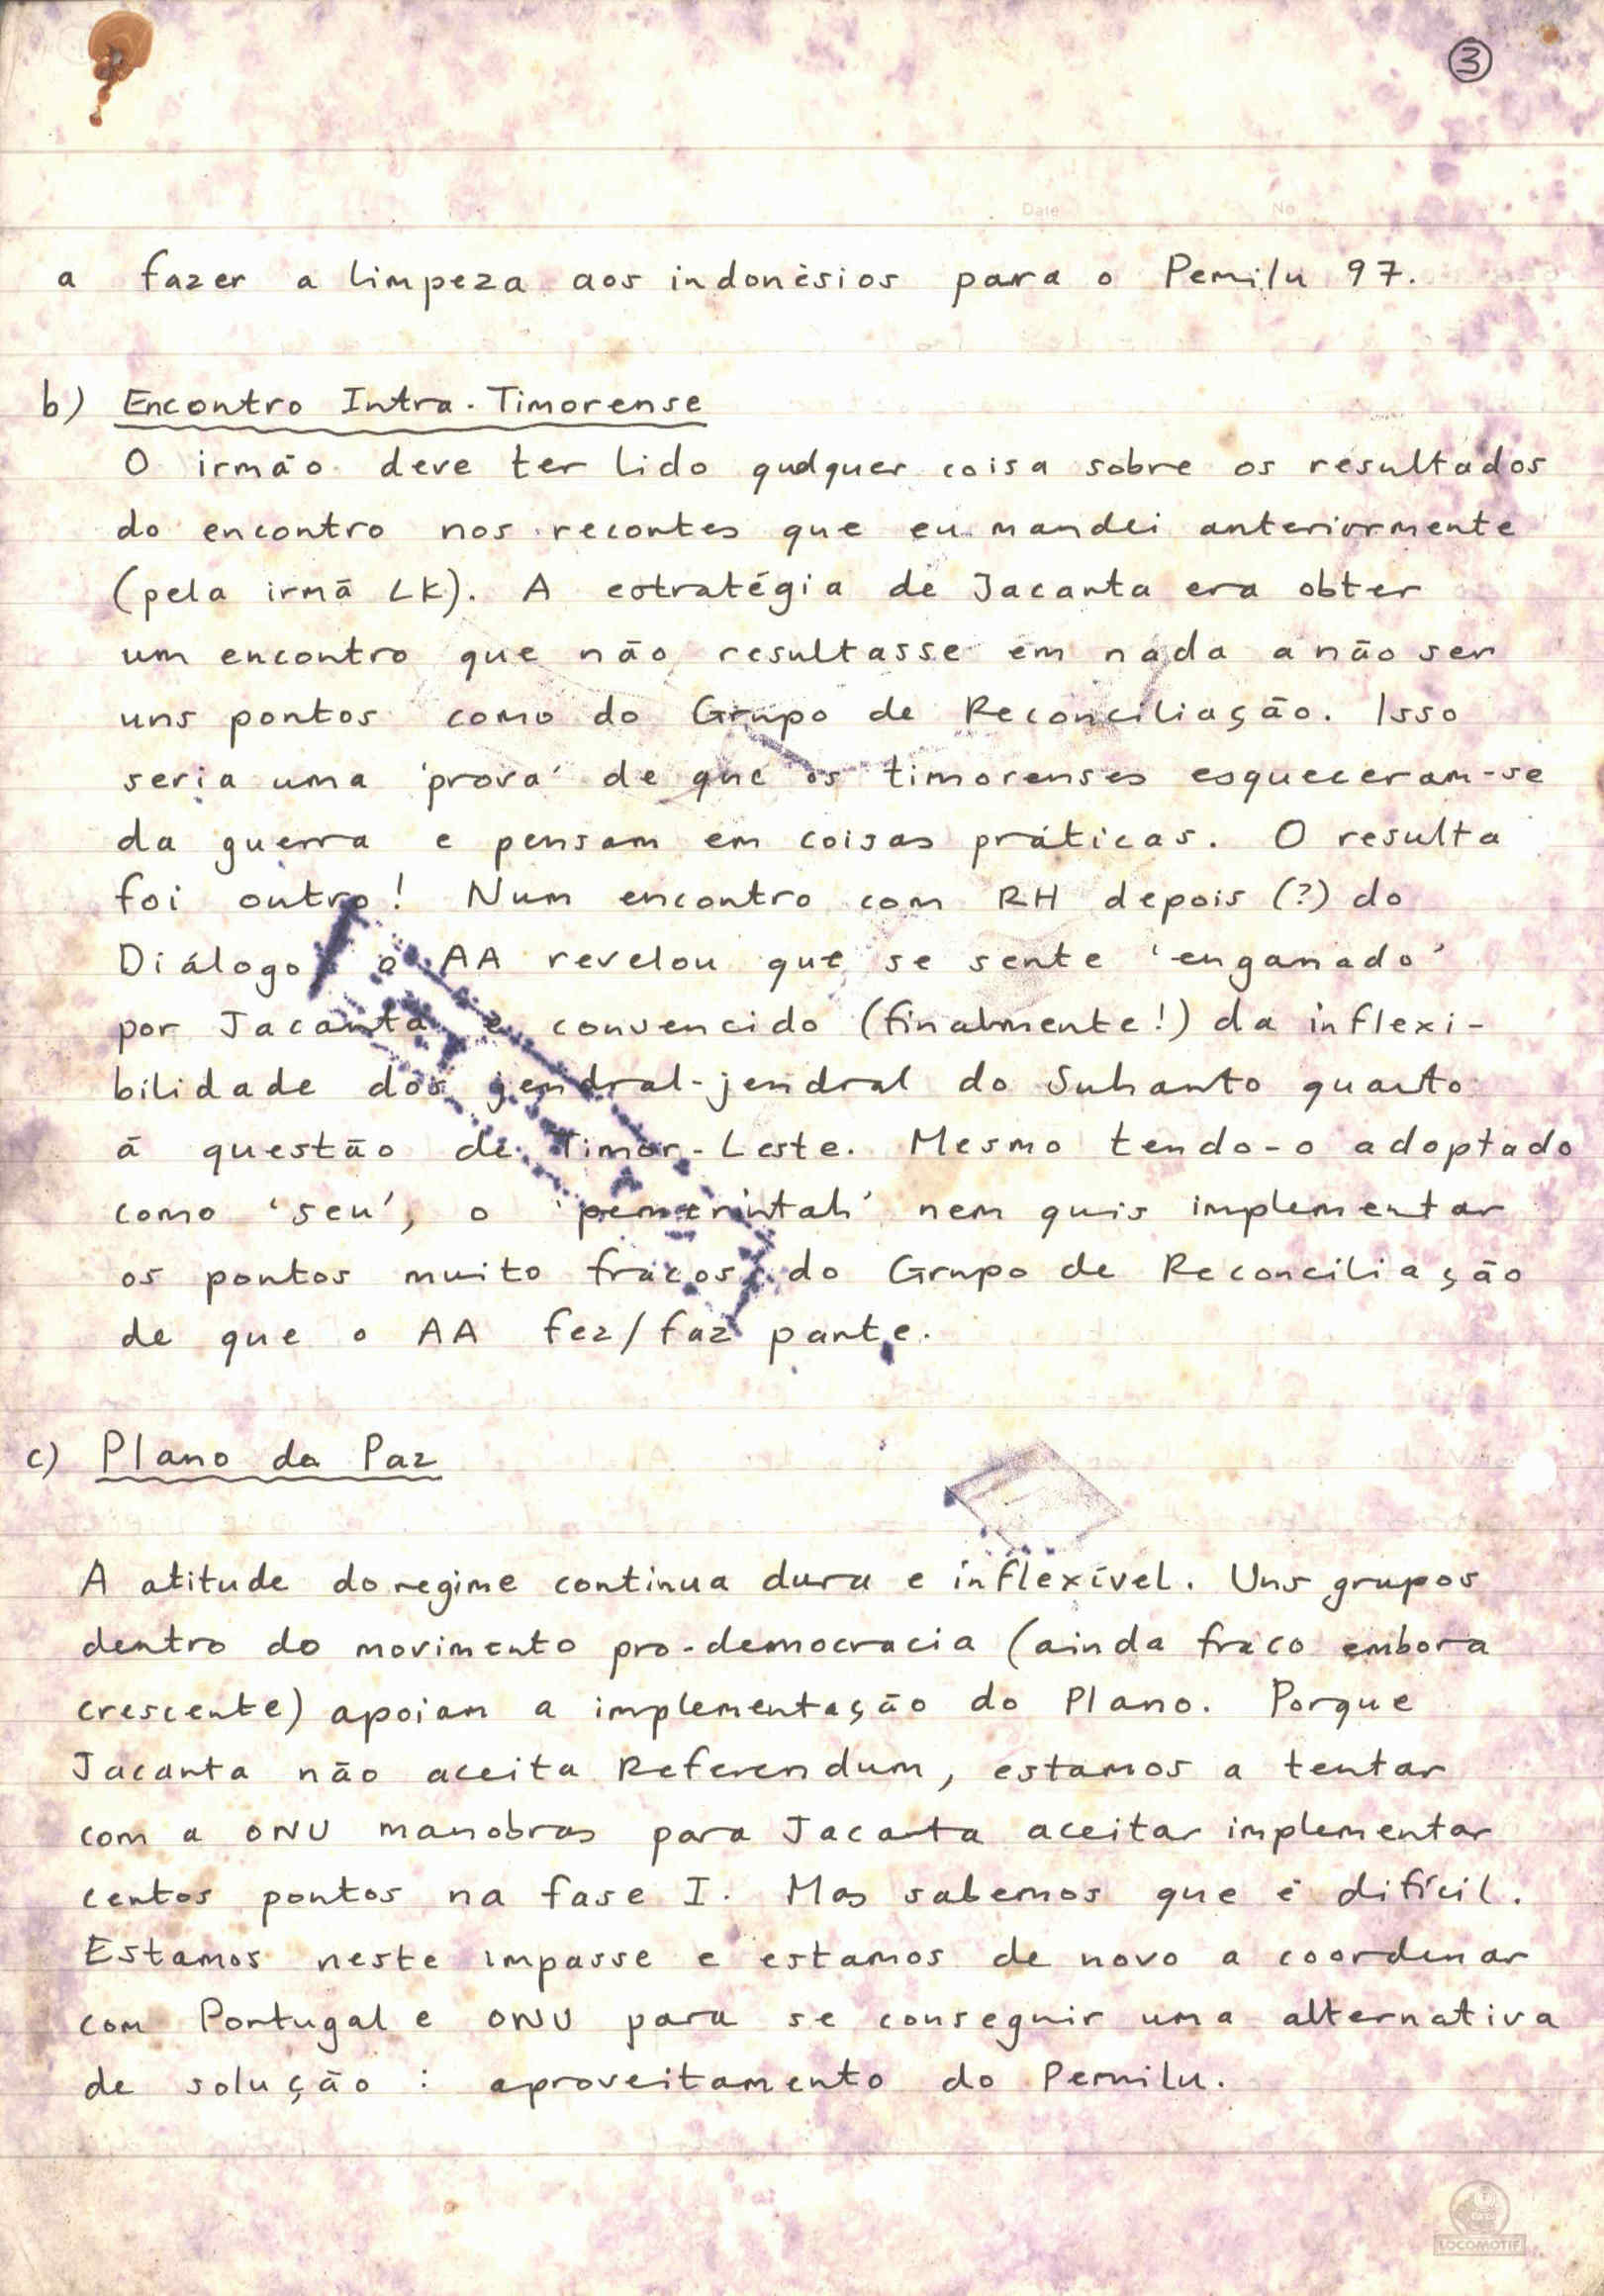 3
Date No
a fazer a limpeza aos indonésios para o Pemilu 97.
b) Encontro Intra-Timorense
O irmão deve ter lido qualquer coisa sobre os resultados
do encontro nos recortes que eu mandei anteriormente
(pela irmã LK). A estratégia de Jacarta era obter
um encontro que não resultasse em nada a não ser
uns pontos como do Grupo de Reconciliação. Isso
seria uma 'prova' de que os timorenses esqueceram-se
da guerra e pensam em coisas práticas. O resulta
foi outro! Num encontro com RH depois (?) do
Diálogo, o AA revelou que se sente 'enganado'
por Jacarta e convencido (finalmente!) da inflexi-
bilidade dos jendral-jendral do Suharto quanto
à questão de Timor-Leste. Mesmo tendo-o adoptado
como 'seu', o 'pemerintah' nem quis implementar
os pontos muito fracos do Grupo de Reconciliação
de que o AA fez/faz parte.
c) Plano da Paz
A atitude do regime continua dura e inflexível. Uns grupos
dentro do movimento pro-democracia (ainda fraco embora
crescente) apoiam a implementação do Plano. Porque
Jacarta não aceita Referendum, estamos a tentar
com a ONU manobras para Jacarta aceitar implementar
certos pontos na fase I. Mas sabemos que é difícil.
Estamos neste impasse e estamos de novo a coordenar
com Portugal e ONU para se conseguir uma alternativa
de solução : aproveitamento do Pemilu.
LOCOMOTIF